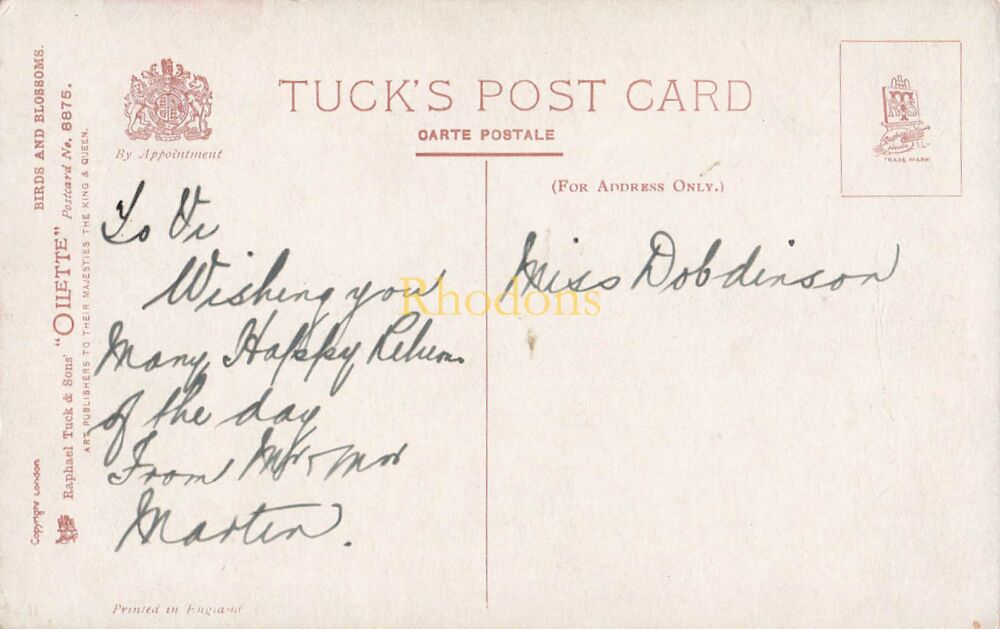 BIRDS AND BLOSSOMS.
Raphael Tuck & Sons' "OILETTE" Postcard No. 8875.
ART PUBLISHERS TO THEIR MAJESTIES THE KING & QUEEN.
Copyright London
By Appointment
TUCK'S POST CARD
CARTE POSTALE
(FOR ADDRESS ONLY.)
TRADE MARK
To Vi
Wishing you
Many Happy Return
of the day
From Mr & Mrs
Martin.
Miss Dobdinson
Rhodons
Printed in England